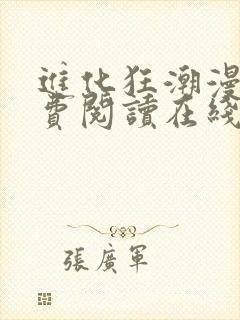 進化狂潮漫
費閱讀在綫
張廣軍